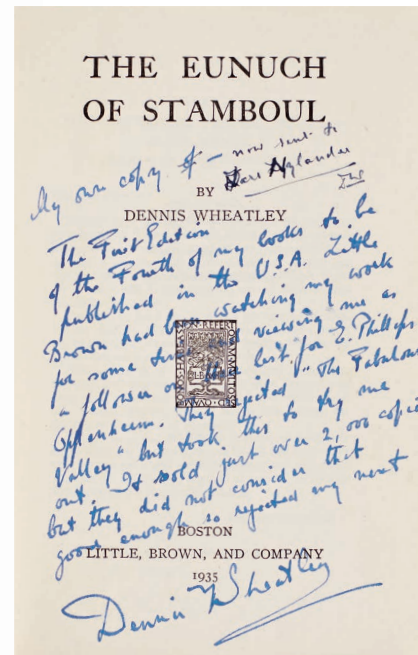 THE EUNUCH
OF STAMBOUL
My own copy – now sent to
Nylander
DW
BY
DENNIS WHEATLEY
The First Edition
of the Fourth of my books to be
published in the U.S.A. Little
Brown had been watching my work
for some time viewing me as
"a follower on the list" for E. Phillips
Oppenheim. They rejected "The Fabulous
Valley" but took this to try me
out. It sold just over 2,000 copies
but they did not consider that
good enough so rejected my next
BOSTON
LITTLE, BROWN, AND COMPANY
1935
Dennis Wheatley